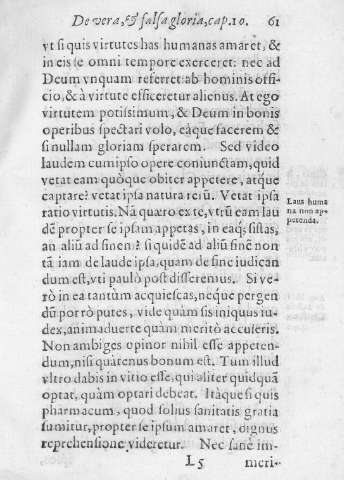 De vera, & falsa gloria, cap. 10. 61
vt si quis virtutes has humanas amaret, &
in eis se omni tempore exerceret: nec ad
Deum vnquam referret ab hominis offi-
cio, & à virtute efficeretur alienus. At ego
virtutem potissimum, & Deum in bonis
operibus spectari volo, eáque facerem &
si nullam gloriam sperarem. Sed video
laudem cum ipso opere coniunctam, quid
vetat eam quòque obiter appetere, atq́ue
captare? vetat ipsa natura rerū. Vetat ipsa
ratio virtutis. Nā quæro ex te, vtrū eam lau
dē propter se ipsam appetas, in eaq́; sistas,
an aliū ad finem? si quidē ad aliū finē non
tā iam de laude ipsa, quàm de fine iudican
dum est, vti paulò post disseremus. Si ve-
rò in ea tantùm acquiescas, neque pergen
dū porrò putes, vide quàm sis iniquus iu-
dex, animaduerte quàm meritò acculeris.
Non ambiges opinor nihil esse appeten-
dum, nisi quàtenus bonum est. Tum illud
vltro dabis in vitio esse, qui aliter quidquā
optat, quàm optari debeat. Itàque si quis
pharmacum, quod solius sanitatis gratia
sumitur, propter se ipsum amaret, dignus
reprehensione videretur. Nec sanè im-
L5 meri-
Laus huma
na non ap-
petenda.